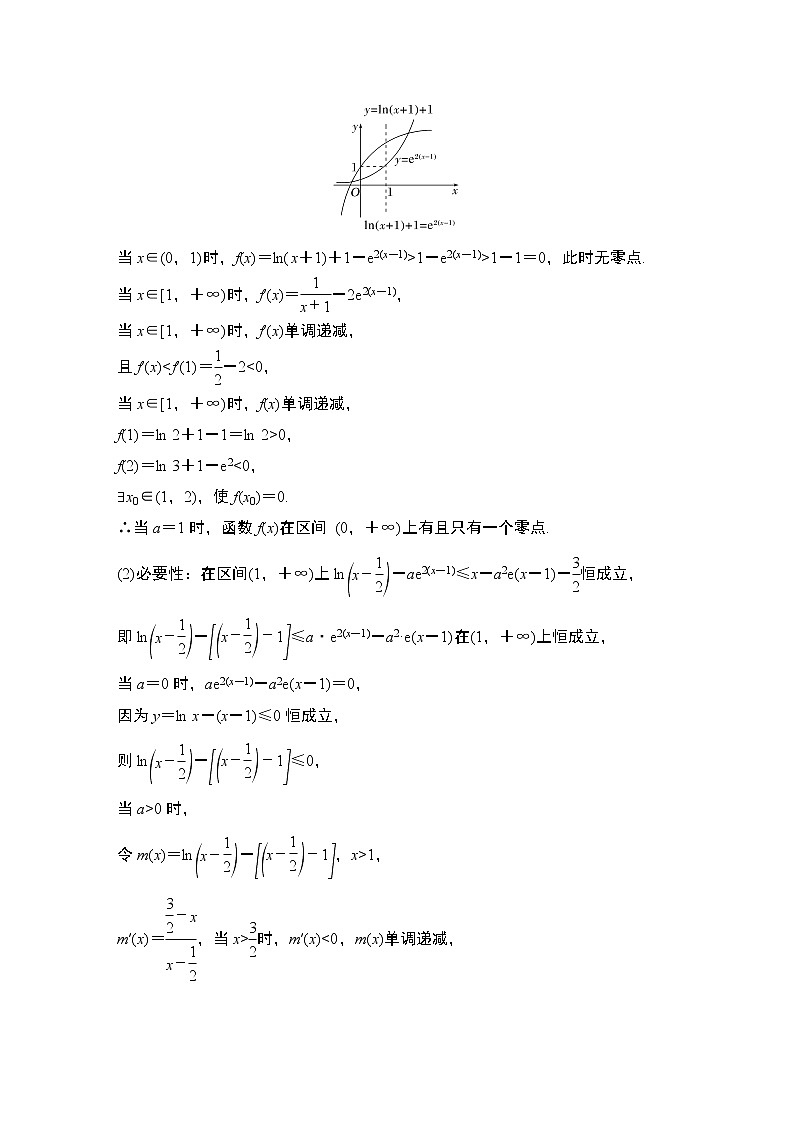 y=ln(x+1)+1
y
1
y=e^{2(x−1)}
O 1 x
ln(x+1)+1=e^{2(x−1)}
当 x∈(0，1)时，f(x)=ln( x+1)+1−e^{2(x−1)}>1−e^{2(x−1)}>1−1=0，此时无零点.
当 x∈[1，+∞)时，f′(x)=\frac{1}{x+1}−2e^{2(x−1)}，
当 x∈[1，+∞)时，f′(x)单调递减，
且 f′(x)<f′(1)=\frac{1}{2}−2<0，
当 x∈[1，+∞)时，f(x)单调递减，
f(1)=ln 2+1−1=ln 2>0，
f(2)=ln 3+1−e^{2}<0，
∃x_{0}∈(1，2)，使 f(x_{0})=0.
∴当 a=1 时，函数 f(x)在区间 (0，+∞)上有且只有一个零点.
(2)必要性：在区间(1，+∞)上 ln(x−\frac{1}{2})−ae^{2(x−1)}≤x−a^{2}e(x−1)−\frac{3}{2}恒成立，
即 ln(x−\frac{1}{2})−[(x−\frac{1}{2})−1]≤a·e^{2(x−1)}−a^{2}·e(x−1)在(1，+∞)上恒成立，
当 a=0 时，ae^{2(x−1)}−a^{2}e(x−1)=0，
因为 y=ln x−(x−1)≤0 恒成立，
则 ln(x−\frac{1}{2})−[(x−\frac{1}{2})−1]≤0，
当 a>0 时，
令 m(x)=ln(x−\frac{1}{2})−[(x−\frac{1}{2})−1]，x>1，
m′(x)=\frac{\frac{3}{2}−x}{x−\frac{1}{2}}，当 x>\frac{3}{2}时，m′(x)<0，m(x)单调递减，